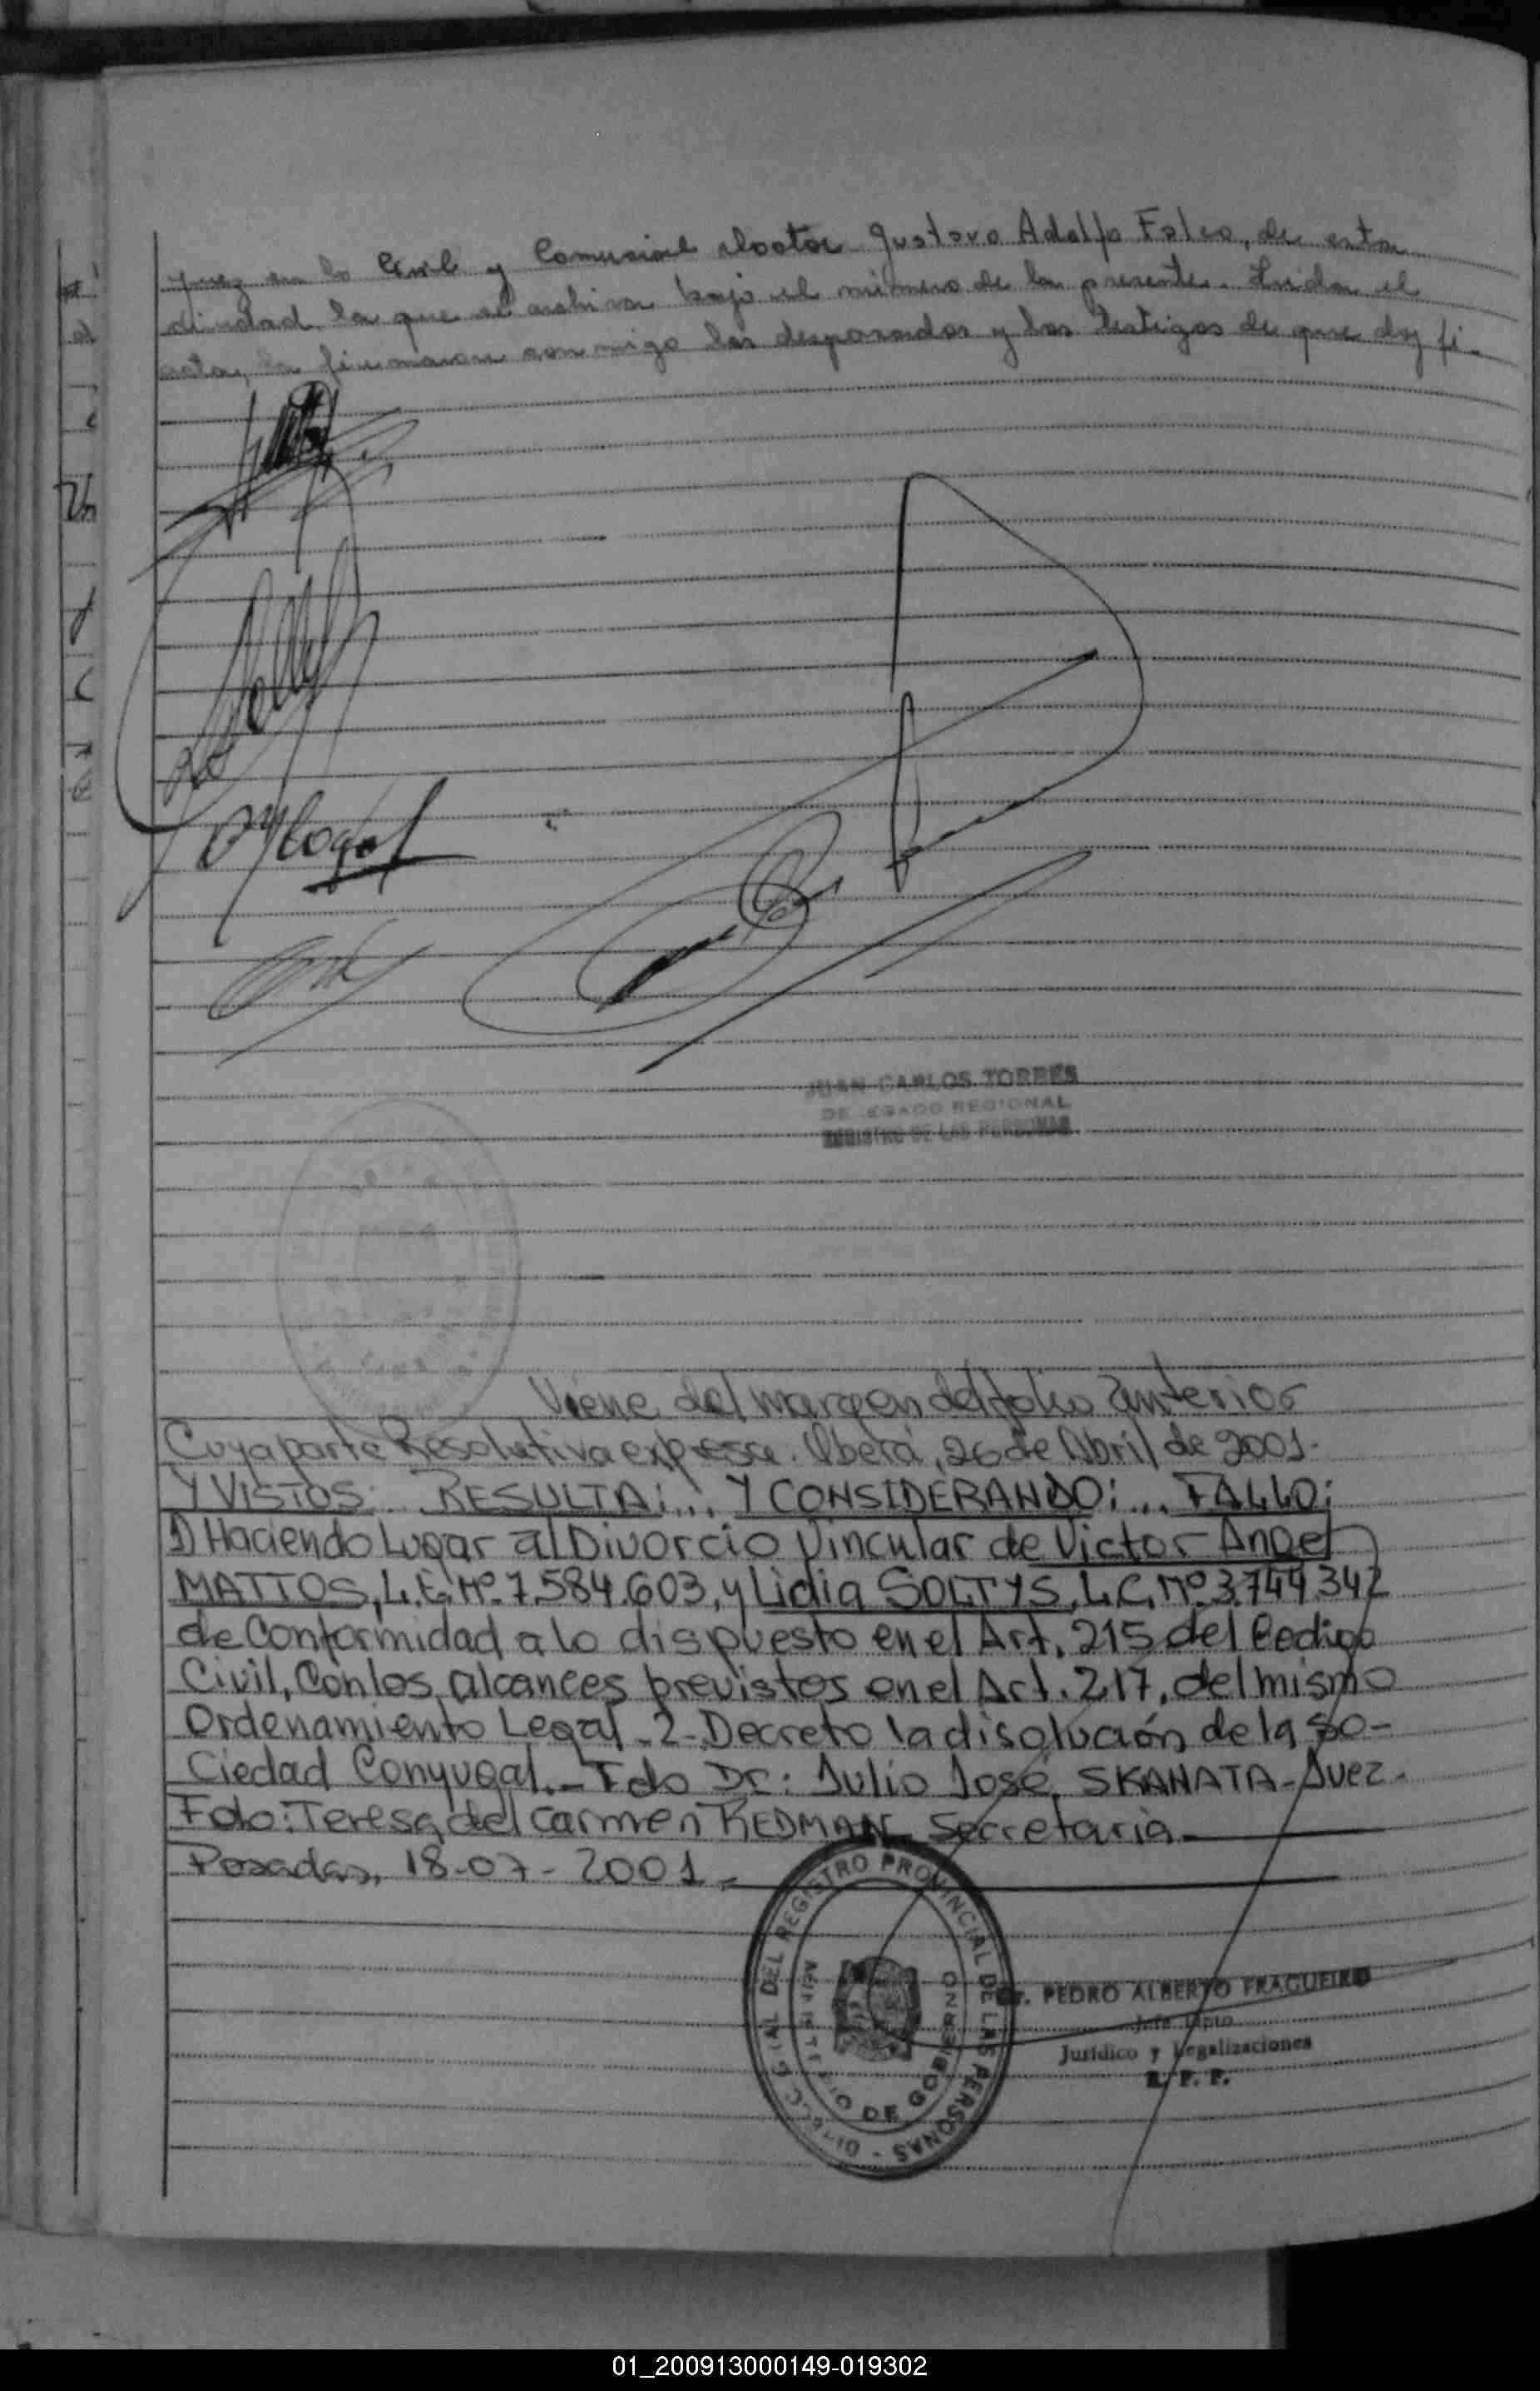 juez en lo Civil y Comercial doctor Gustavo Adolfo Falco, de esta
ciudad, la que se archiva bajo el número de la presente. Leida el
acta, la firmaron conmigo los desposados y los testigos de que doy fé.
JUAN CARLOS TORRES
DELEGADO REGIONAL
REGISTRO DE LAS PERSONAS
Viene del margen del folio anterior
Cuya parte Resolutiva expresa. Oberá, 26 de Abril de 2001.
Y VISTOS: RESULTA:... Y CONSIDERANDO:... FALLO:
1) Haciendo Lugar al Divorcio Vincular de Victor Angel
MATTOS, L.E. Nº 7.584.603, y Lidia SOLTYS, L.C. Nº 3.744.342
de Conformidad a lo dispuesto en el Art. 215 del Codigo
Civil, Con los alcances previstos en el Art. 217, del mismo
Ordenamiento Legal. 2-Decreto la disolución de la so-
Ciedad Conyugal.- Fdo Dr: Julio José SKANATA-Juez.
Fdo: Teresa del Carmen REDMAN Secretaria
Posadas, 18-07-2001.-
DEL REGISTRO PROVINCIAL DE LAS PERSONAS
MINISTERIO DE GOBIERNO
Dr. PEDRO ALBERTO FRAGUEIRO
Jefe Dpto
Jurídico y Legalizaciones
R. P. P.
01_200913000149-019302